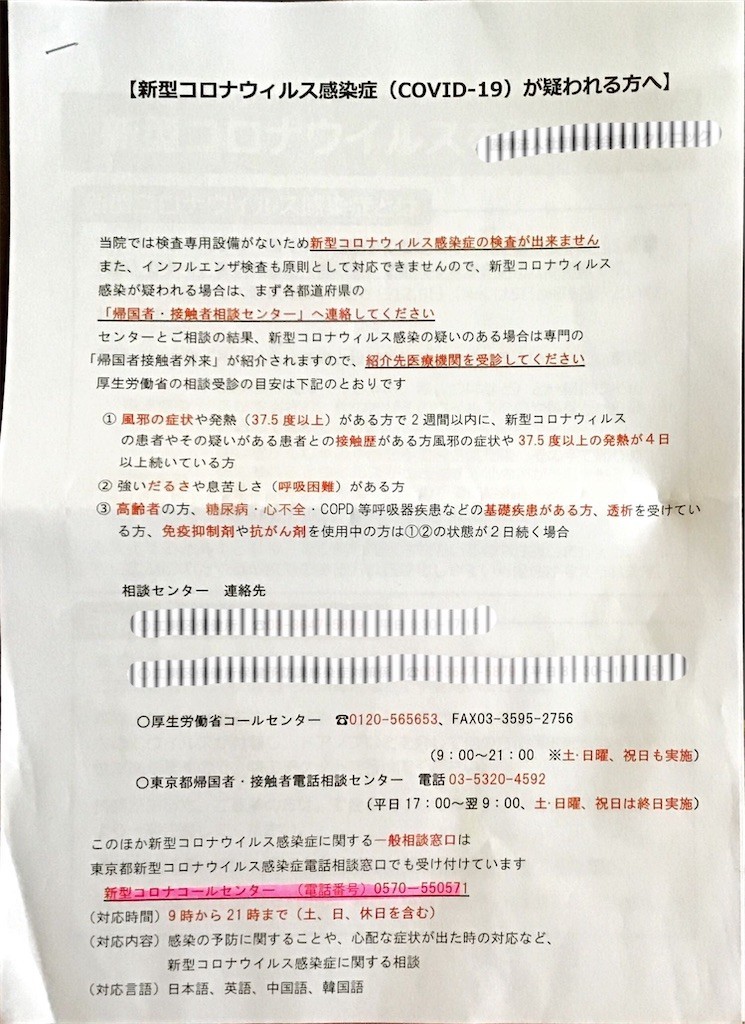 【新型コロナウィルス感染症（COVID-19）が疑われる方へ】
当院では検査専用設備がないため新型コロナウィルス感染症の検査が出来ません
また、インフルエンザ検査も原則として対応できませんので、新型コロナウィルス
感染が疑われる場合は、まず各都道府県の
「帰国者・接触者相談センター」へ連絡してください
センターとご相談の結果、新型コロナウィルス感染の疑いのある場合は専門の
「帰国者接触者外来」が紹介されますので、紹介先医療機関を受診してください
厚生労働省の相談受診の目安は下記のとおりです
① 風邪の症状や発熱（37.5度以上）がある方で2週間以内に、新型コロナウィルス
の患者やその疑いがある患者との接触歴がある方風邪の症状や37.5度以上の発熱が4日
以上続いている方
② 強いだるさや息苦しさ（呼吸困難）がある方
③ 高齢者の方、糖尿病・心不全・COPD等呼吸器疾患などの基礎疾患がある方、透析を受けてい
る方、免疫抑制剤や抗がん剤を使用中の方は①②の状態が2日続く場合
相談センター　連絡先
〇厚生労働省コールセンター　☎0120-565653、FAX03-3595-2756
（9：00～21：00　※土・日曜、祝日も実施）
〇東京都帰国者・接触者電話相談センター　電話 03-5320-4592
（平日17：00～翌9：00、土・日曜、祝日は終日実施）
このほか新型コロナウイルス感染症に関する一般相談窓口は
東京都新型コロナウイルス感染症電話相談窓口でも受け付けています
新型コロナコールセンター　（電話番号）0570－550571
（対応時間）9時から21時まで（土、日、休日を含む）
（対応内容）感染の予防に関することや、心配な症状が出た時の対応など、
新型コロナウイルス感染症に関する相談
（対応言語）日本語、英語、中国語、韓国語